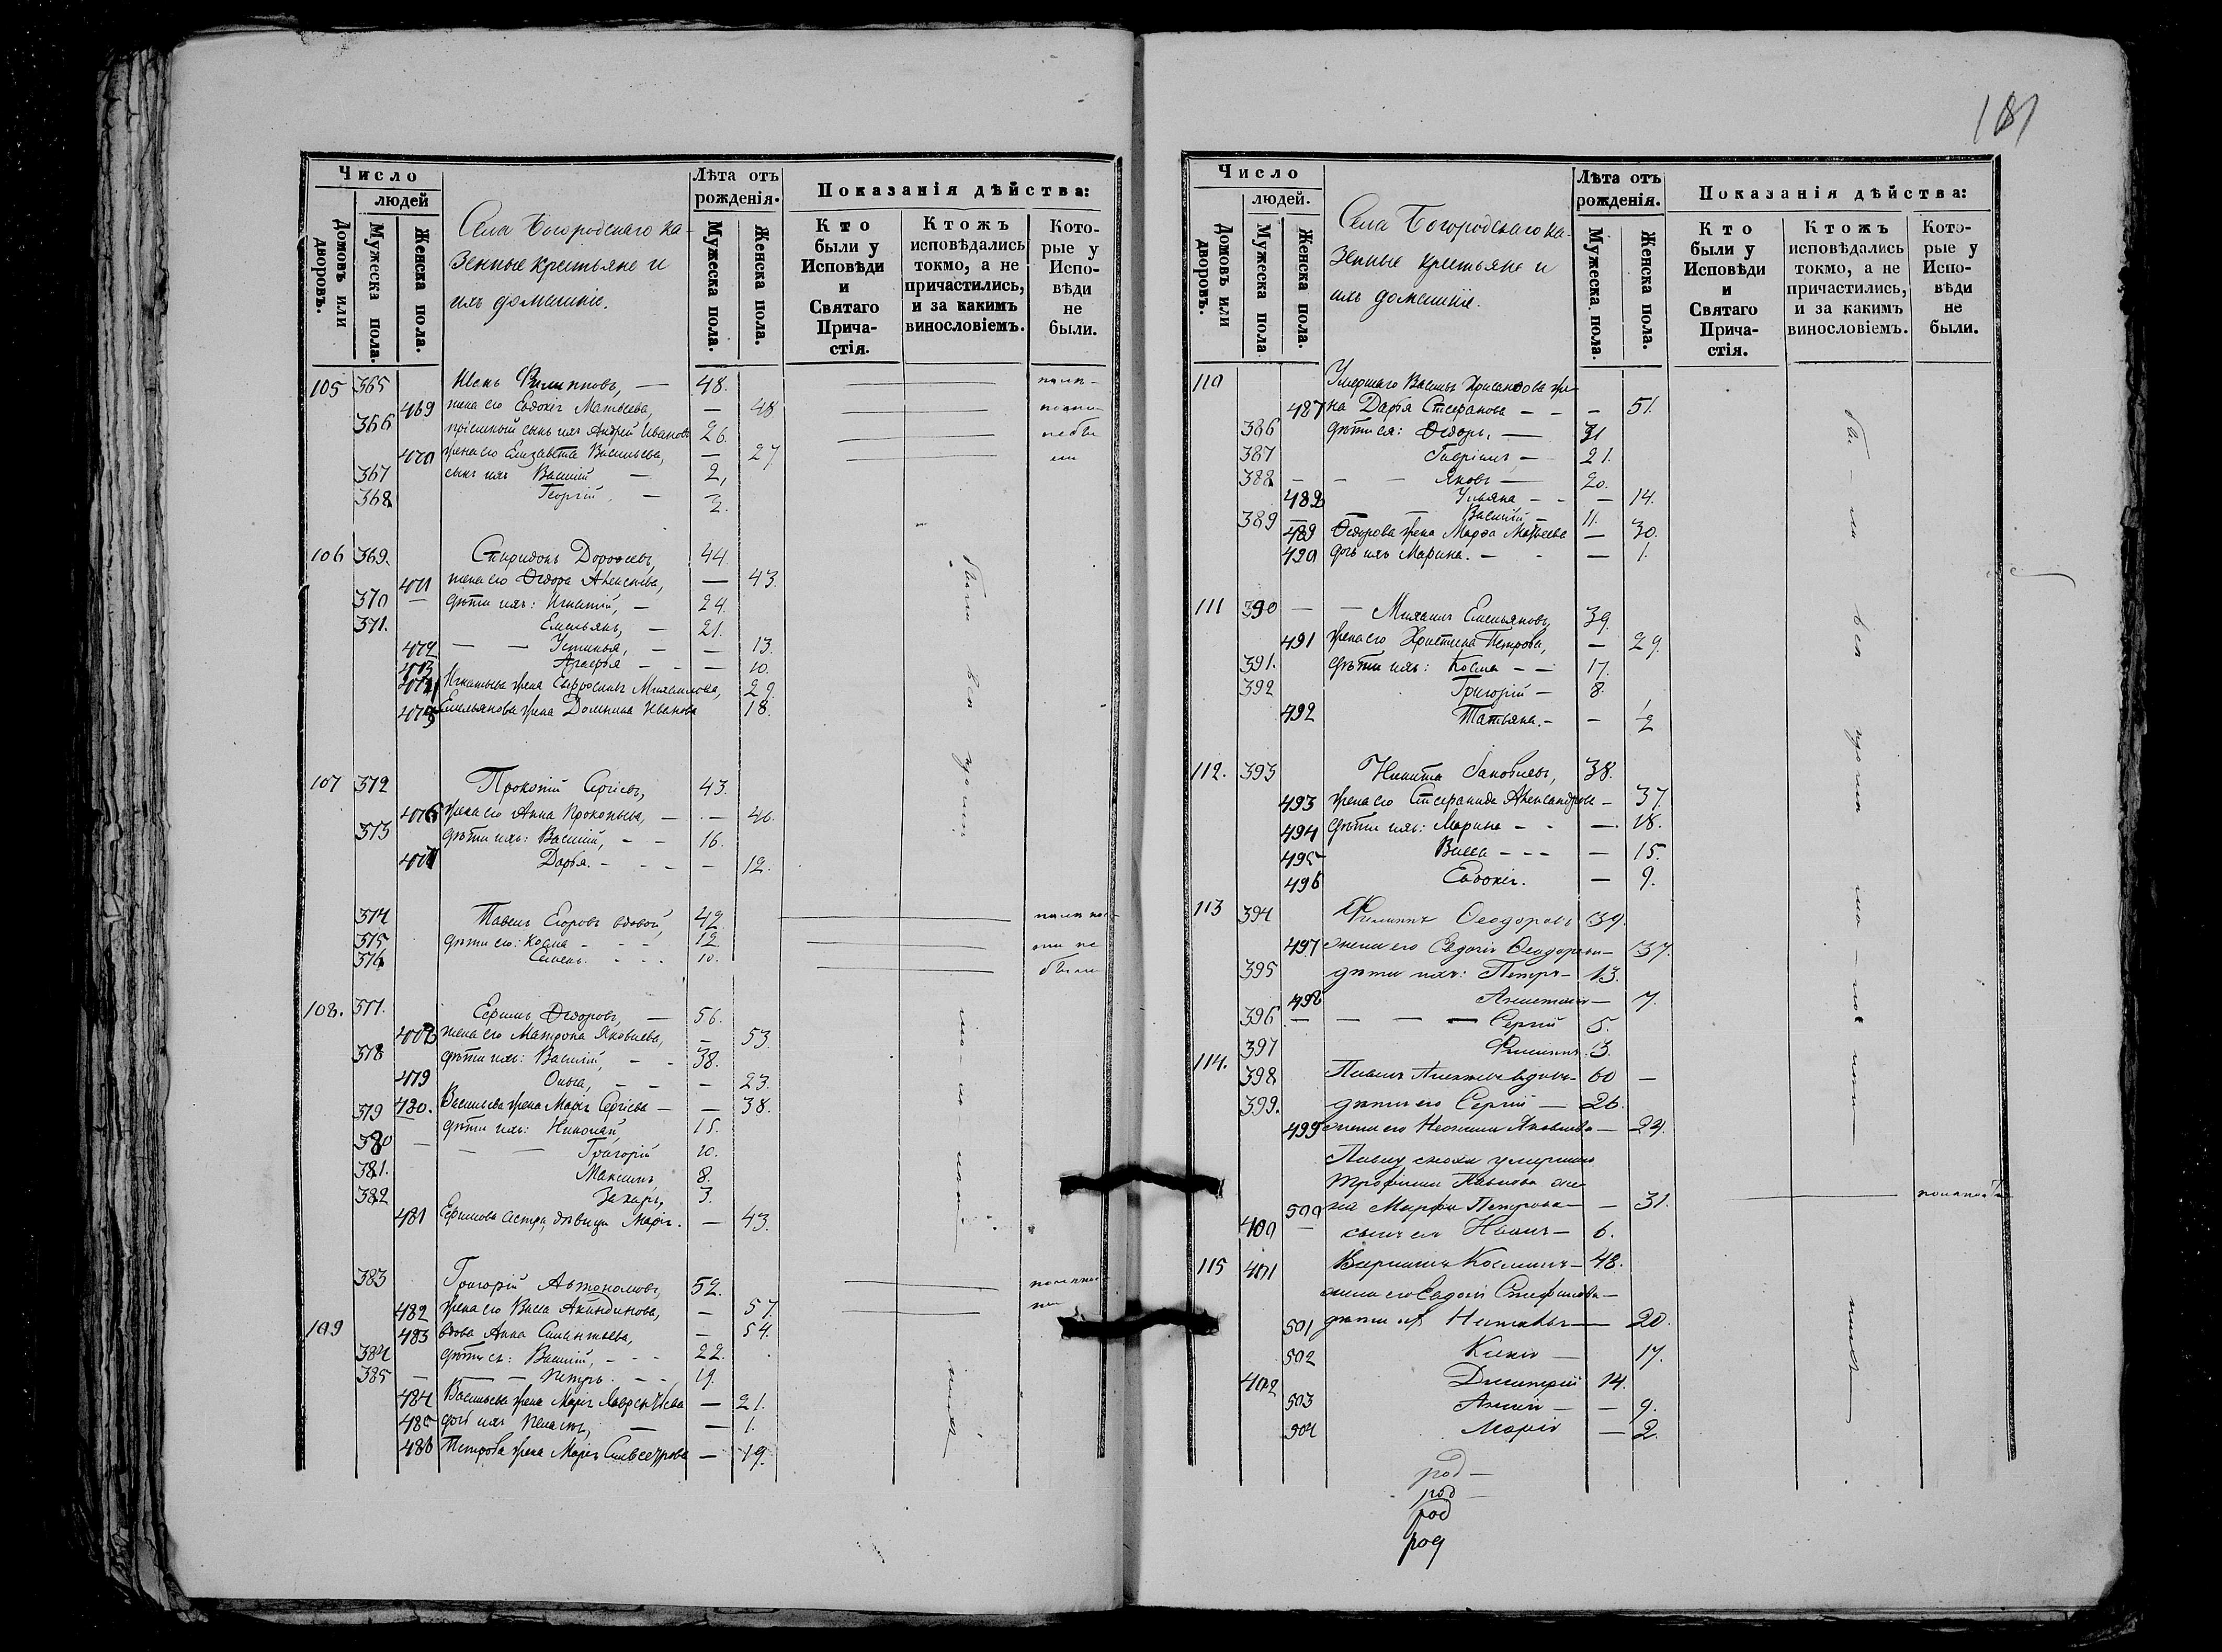 Число
людей
Домовъ или дворовъ.
Мужеска пола.
Женска пола.
Села Богородскаго ка-
зенные крестьяне и
ихъ домашніе.
Лѣта отъ рожденія.
Мужеска пола.
Женска пола.
Показанія дѣйства:
Кто были у Исповѣди и Святаго Прича-стія.
Ктожъ исповѣдались токмо, а не причастились, и за какимъ винословіемъ.
Кото-рые у Испо-вѣди не были.
105 365 Иванъ Филипповъ, — 48.
469 жена его Евдокія Матвѣева, — 48
366 пріемный сынъ ихъ Андрей Ивановъ 26.
470 жена его Елизавета Васильева, — 27
367 сынъ ихъ Василій — 2,
368 Георгій —
106 369. Спиридонъ Дороѳеевъ, 44.
471 жена его Ѳедора Алексѣева, — 43.
370 — дѣти ихъ: Игнатій, — 24.
371. Емельянъ, — 21.
472 — — Устинья, — — 13.
473 Агаѳья — — — 10.
474 Игнатьева жена Евфросинья Михаилова, 29.
475 Емельянова жена Домника Иванова 18.
107 372 Прокопій Сергіевъ, 43.
476 жена его Анна Прокопьева, — — 46.
373 дѣти ихъ: Василій, — — 16.
477 Дарья. — — — — 12.
374 Павелъ Егоровъ вдовой, 42.
375 дѣти его: Косма — — — 12
376 Семенъ. — — — 10.
108. 377. Ефимъ Ѳедоровъ, — 56.
478 жена его Матрона Яковлева, — 53.
378 дѣти ихъ: Василій, — — 38.
479 Ольга, — — — 23.
480. Васильева жена Марія Сергіева — — 38.
379 дѣти ихъ: Николай, 15.
380 — — — Григорій 10.
381. Максимъ, 8.
382 Захаръ, 3.
481 Ефимова сестра, дѣвица Марія. — 43.
383 Григорій Автономовъ, 52.
482 жена его Васса Акиндинова, — 57.
109 483 вдова Анна Силантьева, — 54.
384 дѣти ея: Василій, — — — 22.
385 — — — Петръ. — — 19.
484 Васильева жена Марія Лаврентьева — 21.
485 дочь ихъ Пелагія, — — 1.
486 Петрова жена Марія Сильвестрова — 19.
181
Число
людей.
Домовъ или дворовъ.
Мужеска пола
Женска пола.
Села Богородскаго ка-
зенные крестьяне и
ихъ домашніе.
Лѣта отъ рожденія.
Мужеска пола.
Женска пола.
Показанія дѣйства:
Кто были у Исповѣди и Святаго Прича-стія.
Ктожъ исповѣдались токмо, а не причастились, и за какимъ винословіемъ.
Кото-рые у Испо-вѣди не были.
110 Умершаго Василья Хрисанѳова же-
487 на Дарья Стефанова — — — 51.
386 дѣти ея: Ѳедоръ, — 31
387 Гавріилъ, — 21.
388 — — — Яковъ — 20.
488 Ульяна — — — 14.
389 — — Василій — 11.
489 Ѳедорова жена Марѳа Матвѣева — 30.
490 дочь ихъ Марина. — — — 1.
111 390 — — Михаилъ Емельяновъ, 39.
491 жена его Христина Петрова, — 29.
391. дѣти ихъ: Косма — — 17.
392 Григорій — 8.
492 Татьяна. — — 1/2
112. 393 Никита Яковлевъ, 38.
493 жена его Стефанида Александрова — 37.
494 дѣти ихъ: Марина — — —. 18.
495 Васса — — — — 15.
496 Евдокія. — 9.
113 394 Филиппъ Ѳеодоровъ 39.
497 жена его Евдокія Ѳеодорова — 37.
395 дѣти ихъ: Петръ — 13.
498 7.
396 — — — — Сергій 5.
397 Филиппъ. 3.
114. 398 Павелъ вдовъ — 60 —
399. дѣти его Сергій — 26.
499 жена его Яковлева — 24.
Павла сноха умершаго
Трофима Павлова же-
500 на Марфа Петрова — — 31.
400 — сынъ ея Иванъ — 6.
115 401 Косминъ — 48.
жена его Евдокія Стефанова —
501 дѣти — 20.
502 — 17.
402 Димитрій 14.
503 — — 9.
504 Марія — 2.
род —
род —
род
род